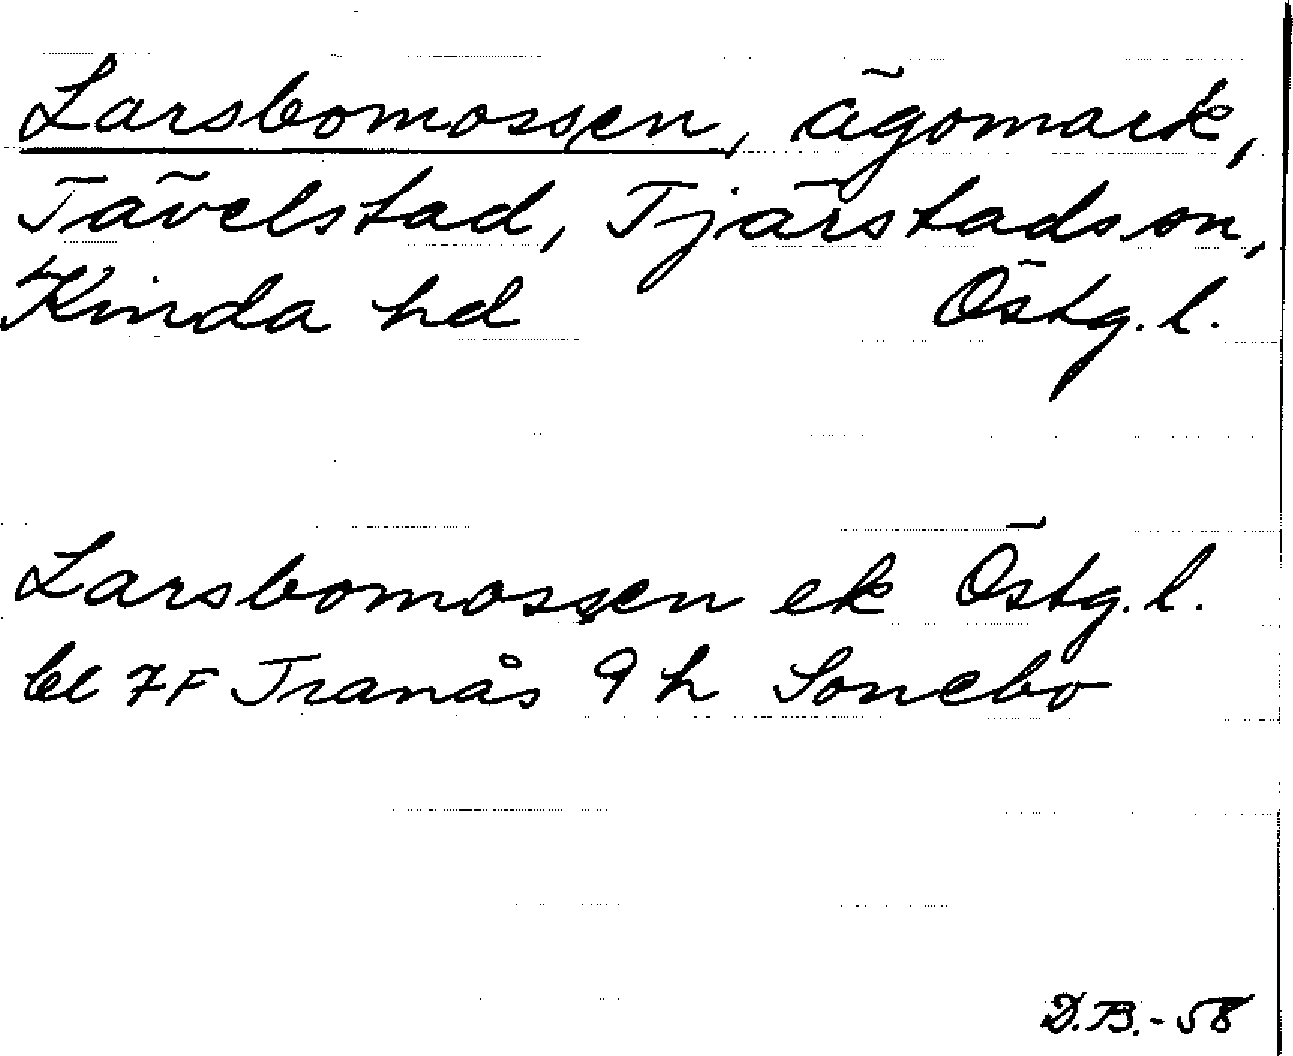 Larsbomossen, ägomark,
Tävelstad, Tjärstads sn,
Kinda hd Östg. l.
Larsbomossen ek Östg. l.
bl 7F Tranås 9 h Sonebo
D.B. - 58